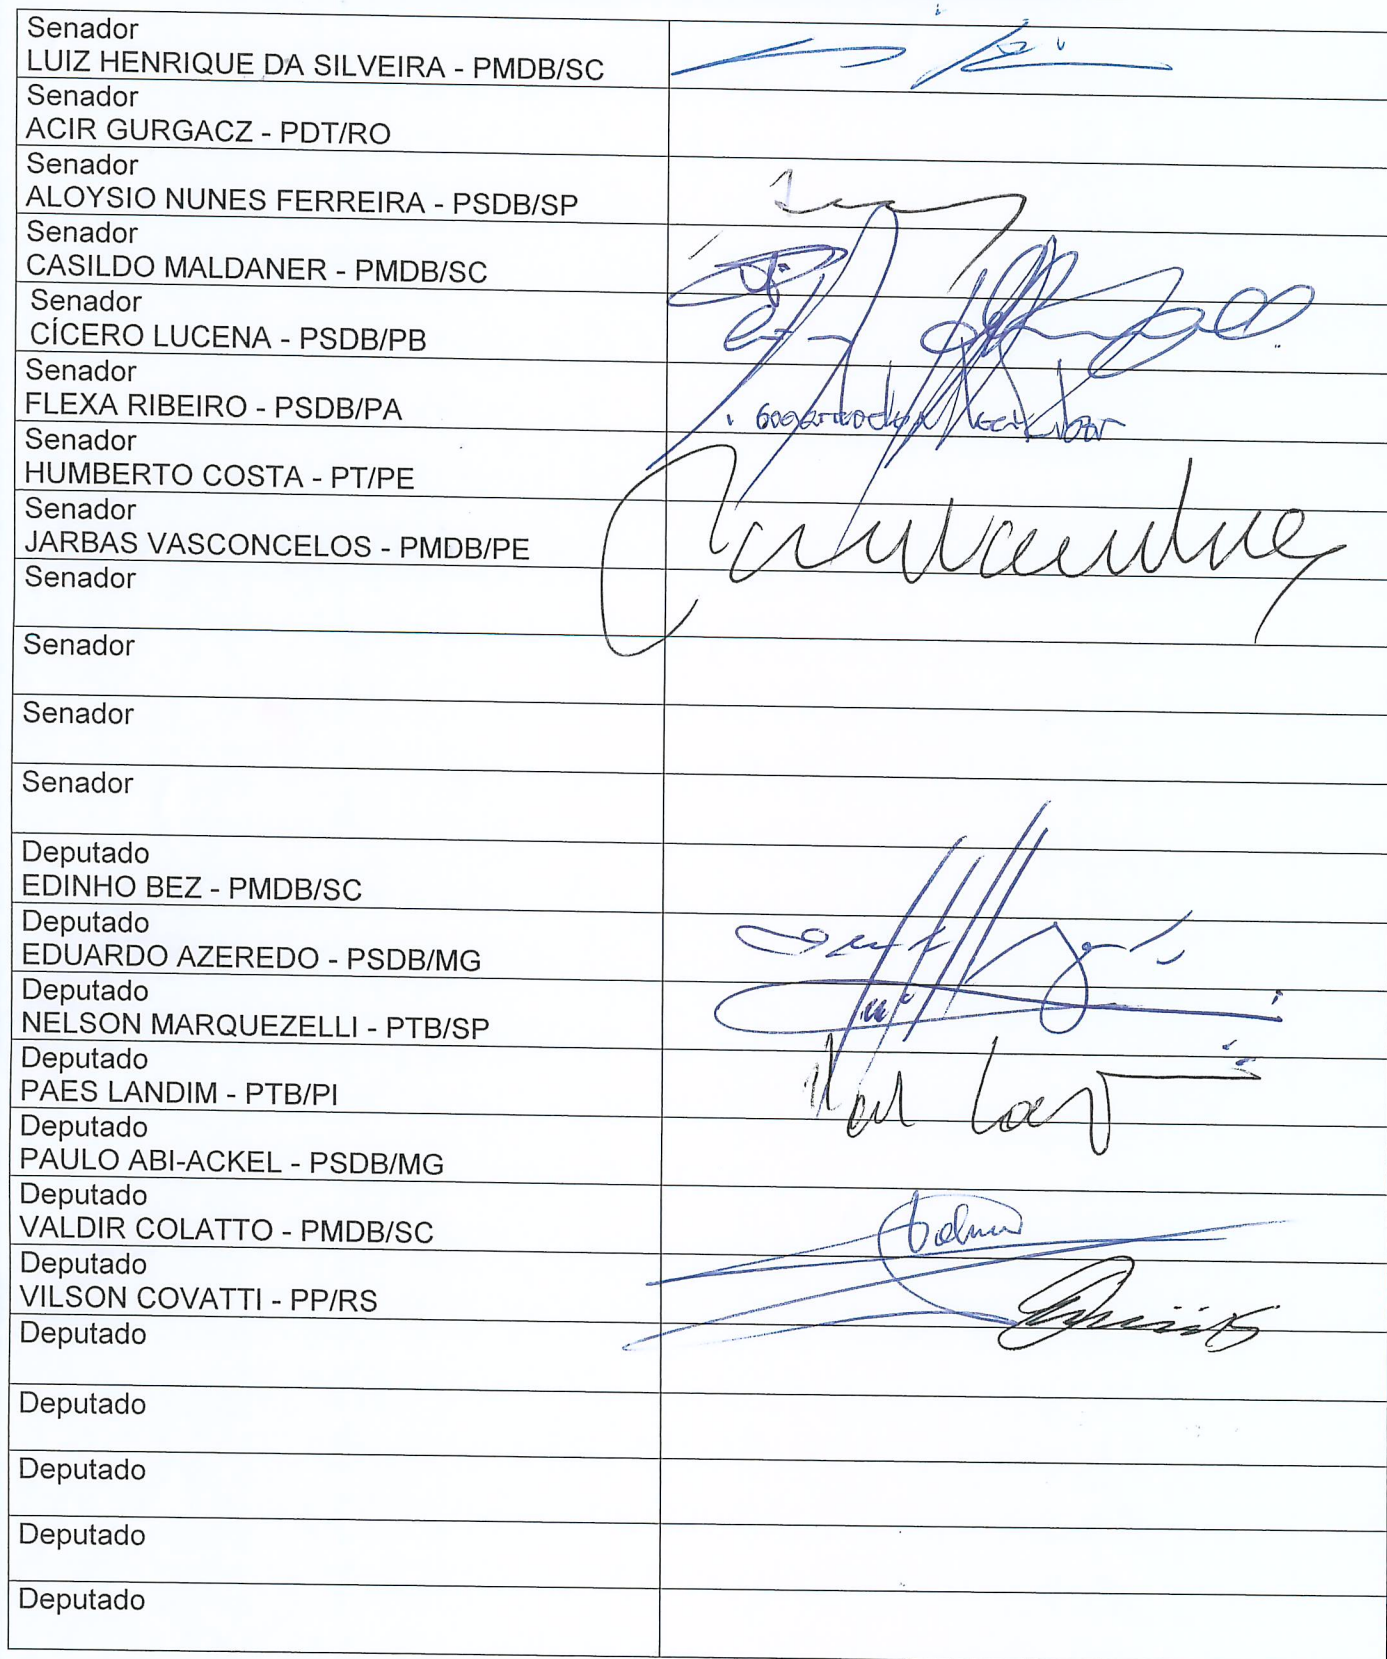 Senador
LUIZ HENRIQUE DA SILVEIRA - PMDB/SC
Senador
ACIR GURGACZ - PDT/RO
Senador
ALOYSIO NUNES FERREIRA - PSDB/SP
Senador
CASILDO MALDANER - PMDB/SC
Senador
CÍCERO LUCENA - PSDB/PB
Senador
FLEXA RIBEIRO - PSDB/PA
Senador
HUMBERTO COSTA - PT/PE
Senador
JARBAS VASCONCELOS - PMDB/PE
Senador
Senador
Senador
Senador
Deputado
EDINHO BEZ - PMDB/SC
Deputado
EDUARDO AZEREDO - PSDB/MG
Deputado
NELSON MARQUEZELLI - PTB/SP
Deputado
PAES LANDIM - PTB/PI
Deputado
PAULO ABI-ACKEL - PSDB/MG
Deputado
VALDIR COLATTO - PMDB/SC
Deputado
VILSON COVATTI - PP/RS
Deputado
Deputado
Deputado
Deputado
Deputado